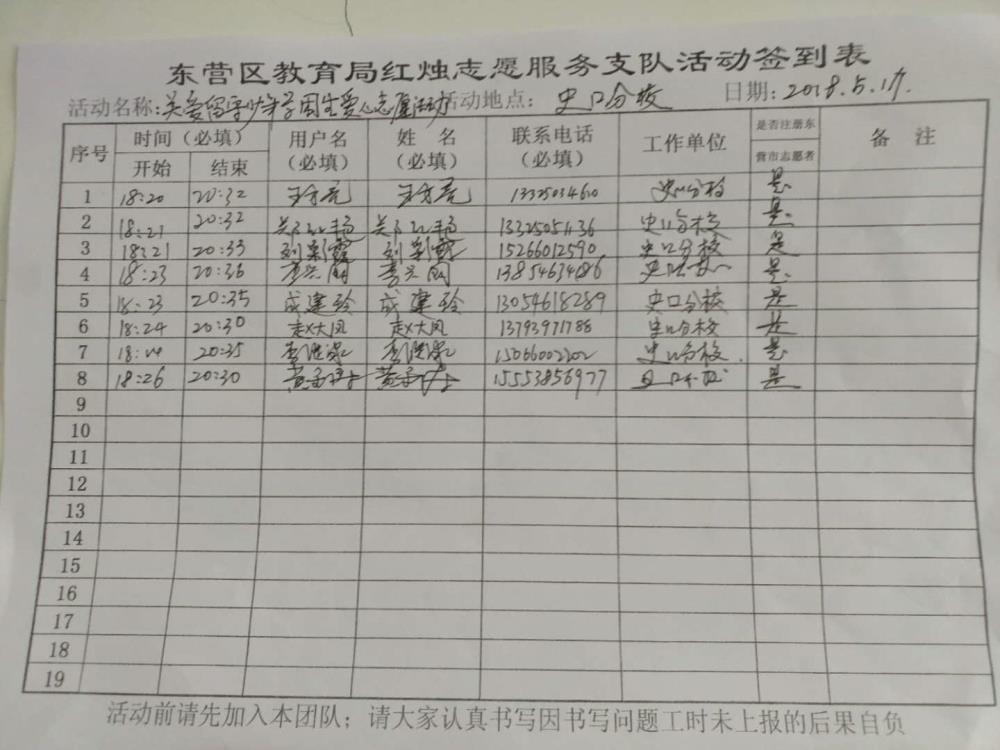 东营区教育局红烛志愿服务支队活动签到表
活动名称:关爱留守少年学困生爱心志愿活动 活动地点: 史口分校 日期: 2018.5.17.
序号 时间（必填） 用户名（必填） 姓 名（必填） 联系电话（必填） 工作单位 是否注册东营市志愿者 备 注
开始 结束
1 18:20 20:32 13325034610 史口分校 是
2 18:21 20:32 13325051136 史口分校 是
3 18:21 20:33 刘彩霞 刘彩霞 15266012590 史口分校 是
4 18:23 20:36 13854634686 是
5 18:23 20:35 成建玲 成建玲 13054618289 史口分校 是
6 18:24 20:30 赵大凤 赵大凤 13793971788 史口分校 是
7 20:35 15066002202 史口分校 是
8 18:26 20:30 15553856977 是
9
10
11
12
13
14
15
16
17
18
19
活动前请先加入本团队；请大家认真书写因书写问题工时未上报的后果自负